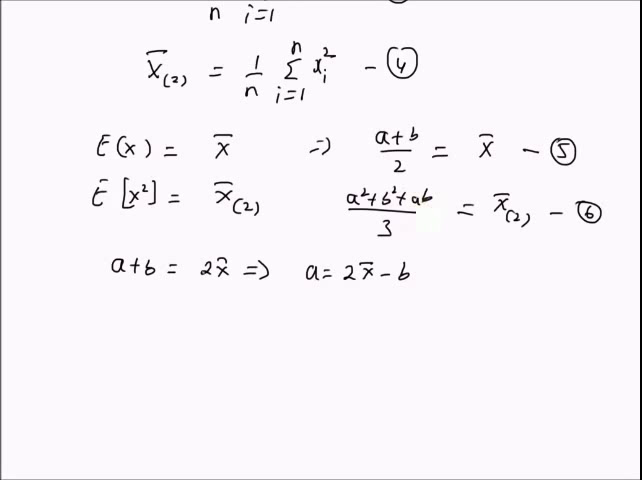 n i=1
x̄₍₂₎ = 1/n Σⁿᵢ₌₁ xᵢ² – ④
E(x) = x̄ ⇒ a+b/2 = x̄ – ⑤
E[x²] = x̄₍₂₎ a²+b²+ab/3 = x̄₍₂₎ – ⑥
a+b = 2x̄ ⇒ a = 2x̄ – b